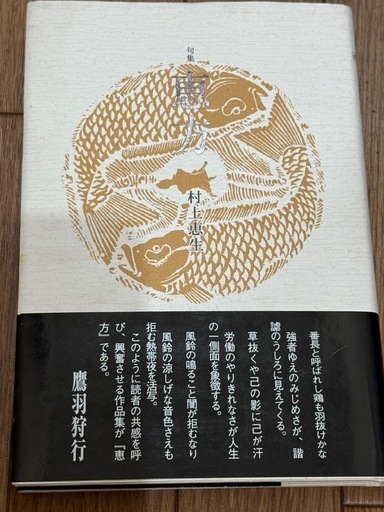 句集
恵方
村上恵生
番長と呼ばれし鶏も羽抜けかな
強者ゆえのみじめさが、諧
謔のうしろに見えてくる。
草抜くや己の影に己が汗
労働のやりきれなさが人生
の一側面を象徴する。
風鈴の鳴ること闇が拒むなり
風鈴の涼しげな音色さえも
拒む熱帯夜を活写。
このように読者の共感を呼
び、興奮させる作品集が『恵
方』である。
鷹羽狩行